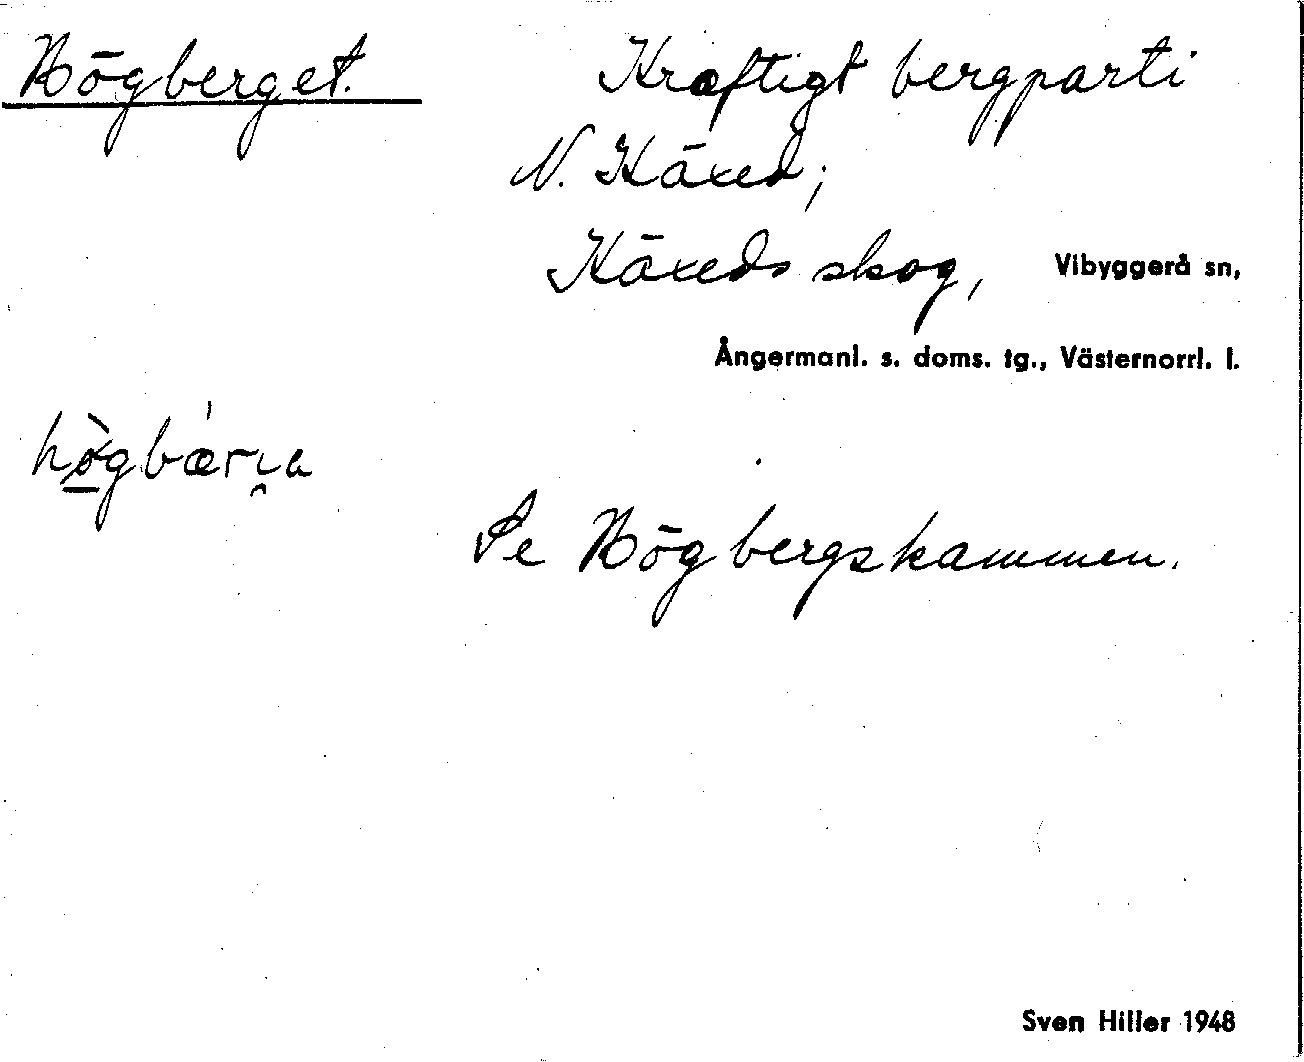 Högberget. Kraftigt bergparti
N. Käxed;
Käxeds skog, Vibyggerå sn,
Ångermanl. s. doms. tg., Västernorrl. l.
Se Högbergskammen.
Sven Hiller 1948